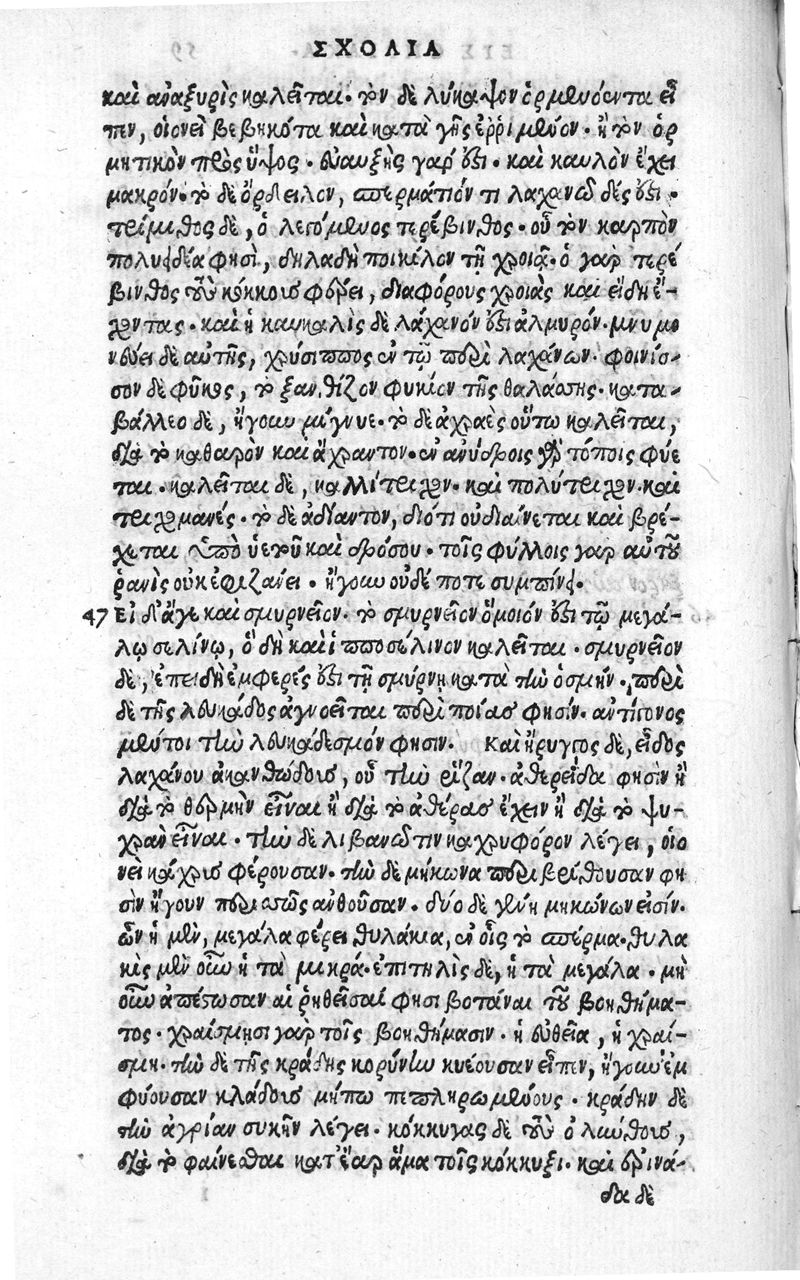 ΣΧΟΛΙΑ
καὶ ἀναξυρὶς καλεῖται. τὸν δὲ λύκαψον ὁρμενόεντα εἶ
πεν, οἱονεὶ βεβηκότα καὶ κατὰ γῆς ἐῤῥιμένον. ἢ τὸν ὁρ
μητικὸν πρὸς ὕψος. εὐαυξὴς γάρ ἐστι. καὶ καυλὸν ἔχει
μακρόν. τὸ δὲ ὄρδειλον, σπερμάτιόν τι λαχανῶδές ἐστι.
τέρμιθος δὲ, ὁ λεγόμενος τερέβινθος. οὗ τὸν καρπὸν
πολυειδέα φησὶ, δηλαδὴ ποικίλον τῇ χροιᾷ. ὁ γὰρ τερέ
βινθος τοὺς κόκκους φέρει, διαφόρους χροιὰς καὶ εἴδη ἔ-
χοντας. καὶ ἡ καυκαλὶς δὲ λάχανόν ἐστι ἁλμυρόν. μνημο
νεύει δὲ αὐτῆς, χρύσιππος ἐν τῷ περὶ λαχάνων. φοινίσ-
σον δὲ φῦκος, τὸ ξανθίζον φυκίον τῆς θαλάσσης. κατα-
βάλλεο δὲ, ἤγουν μίγνυε. τὸ δὲ ἀχραὲς οὕτω καλεῖται,
διὰ τὸ καθαρὸν καὶ ἄχραντον. ἐν ἀνύδροις γὰρ τόποις φύε
ται. καλεῖται δὲ, καλλίτριχον. καὶ πολύτριχον. καὶ
τριχομανές. τὸ δὲ ἀδίαντον, διότι οὐ διαίνεται καὶ βρέ-
χεται ὑπὸ ὑετοῦ καὶ δρόσου. τοῖς φύλλοις γὰρ αὐτοῦ
ῥανὶς οὐκ ἐφιζάνει. ἤγουν οὐδέ ποτε συμπίνει.
47 Εἰ δ' ἄγε καὶ σμυρνεῖον. τὸ σμυρνεῖον ὅμοιόν ἐστι τῷ μεγά-
λῳ σελίνῳ, ὃ δὴ καὶ ἱπποσέλινον καλεῖται. σμυρνεῖον
δὲ, ἐπειδὴ ἐμφερές ἐστι τῇ σμύρνῃ κατὰ τὴν ὀσμήν. περὶ
δὲ τῆς λευκάδος ἀγνοεῖται περὶ ποίας φησίν. ἀντίγονος
μέντοι τὴν λευκάδεσμόν φησιν. Καὶ ἤρυγγος δὲ, εἶδος
λαχάνου ἀκανθώδους, οὗ τὴν ῥίζαν. ἀθερεΐδα φησὶν ἢ
διὰ τὸ θερμὴν εἶναι ἢ διὰ τὸ ἀθέρας ἔχειν ἢ διὰ τὸ ψυ-
χρὰν εἶναι. τὴν δὲ λιβανῶτιν καχρυφόρον λέγει, οἱο
νεὶ κάχρυς φέρουσαν. τὴν δὲ μήκωνα περιβρίθουσαν φη
σὶν ἤγουν περισσῶς ἀνθοῦσαν. δύο δὲ γένη μηκώνων εἰσίν.
ὧν ἡ μὲν, μεγάλα φέρει θυλάκια, ἐν οἷς τὸ σπέρμα. θυλα
κὶς μὲν οὖν ἡ τὰ μικρά. ἐπιτηλὶς δὲ, ἡ τὰ μεγάλα. μὴ
οὖν ἀπέστωσαν αἱ ῥηθεῖσαί φησι βοτάναι τοῦ βοηθήμα-
τος. χραίσμησι γὰρ τοῖς βοηθήμασιν. ἡ εὐθεῖα, ἡ χραί-
σμη. τὴν δὲ τῆς κράδης κορύνην κυέουσαν εἶπεν, ἤγουν ἐμ
φύουσαν κλάδους μήπω πεπληρωμένους. κράδην δὲ
τὴν ἀγρίαν συκῆν λέγει. κόκκυγας δὲ τοὺς ὀλύνθους,
διὰ τὸ φαίνεσθαι κατ' ἔαρ ἅμα τοῖς κόκκυξι. καὶ ἐρινά-
δα δὲ